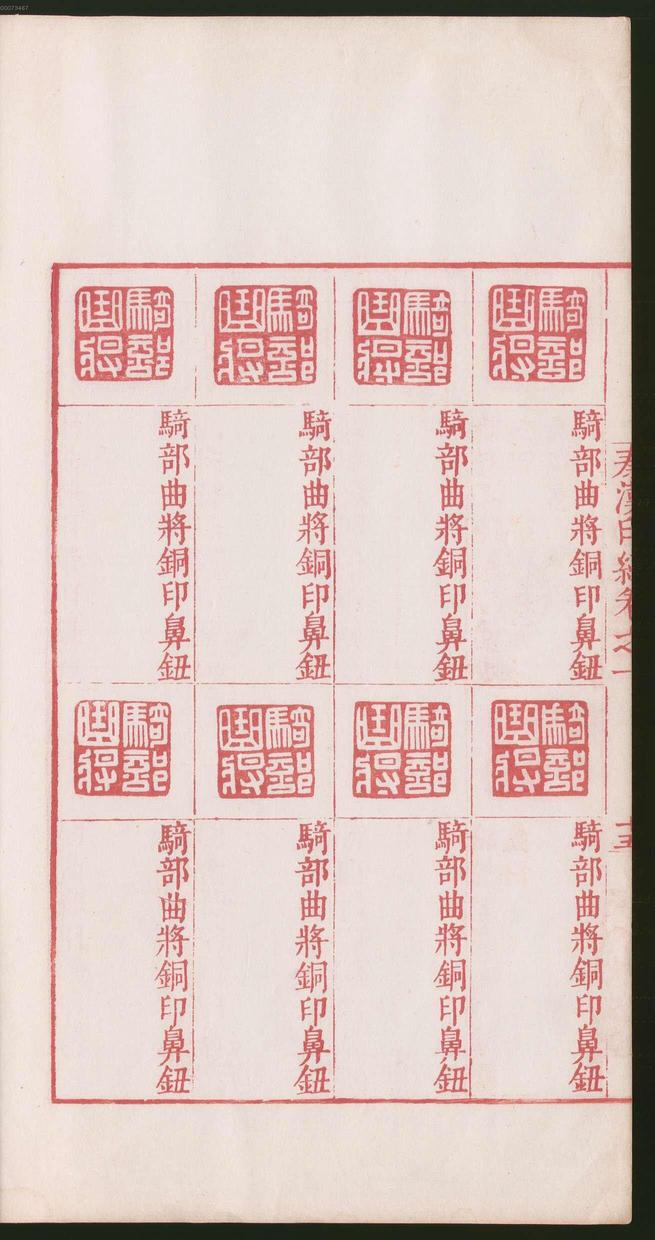 00073467
秦漢印統卷之一
十五
騎部曲將
騎部曲將銅印鼻鈕
騎部曲將
騎部曲將銅印鼻鈕
騎部曲將
騎部曲將銅印鼻鈕
騎部曲將
騎部曲將銅印鼻鈕
騎部曲將
騎部曲將銅印鼻鈕
騎部曲將
騎部曲將銅印鼻鈕
騎部曲將
騎部曲將銅印鼻鈕
騎部曲將
騎部曲將銅印鼻鈕